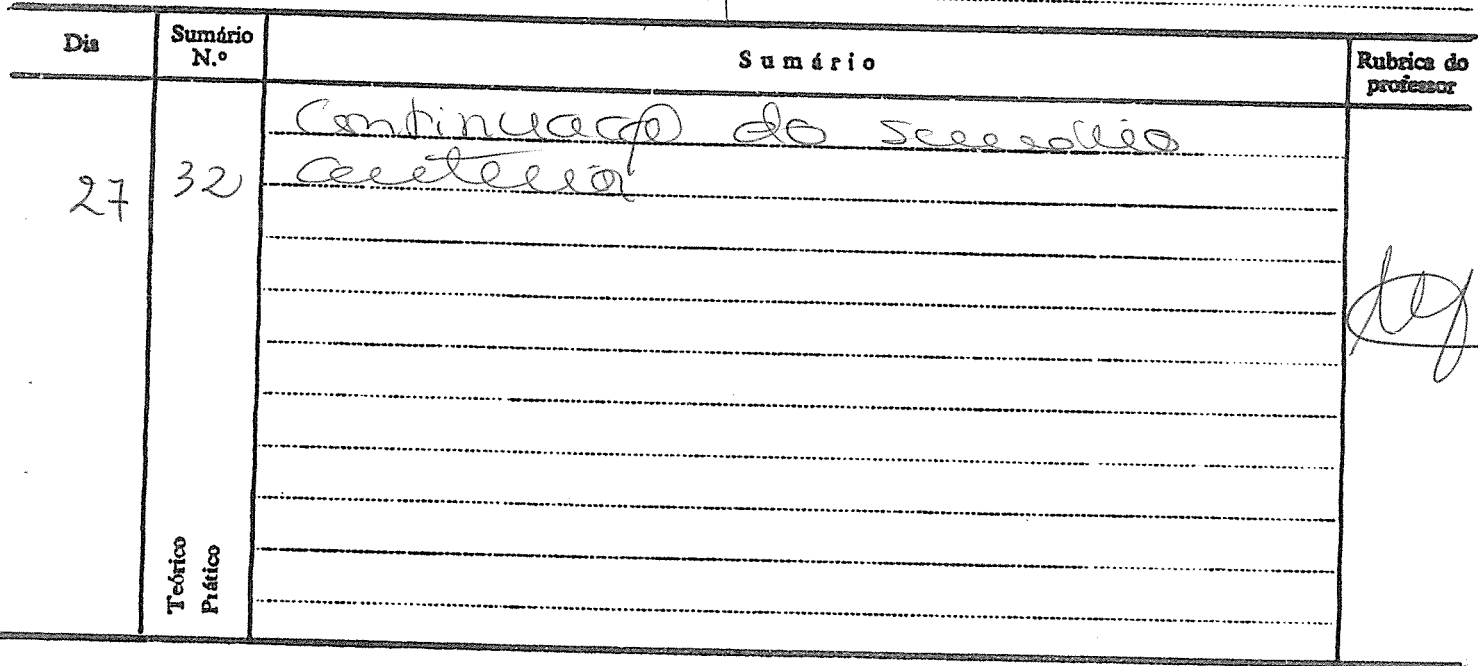 Dia
Sumário
N.º
Sumário
Rubrica do
professor
Continuação do sumário
anterior
27
32
Teórico
Prático